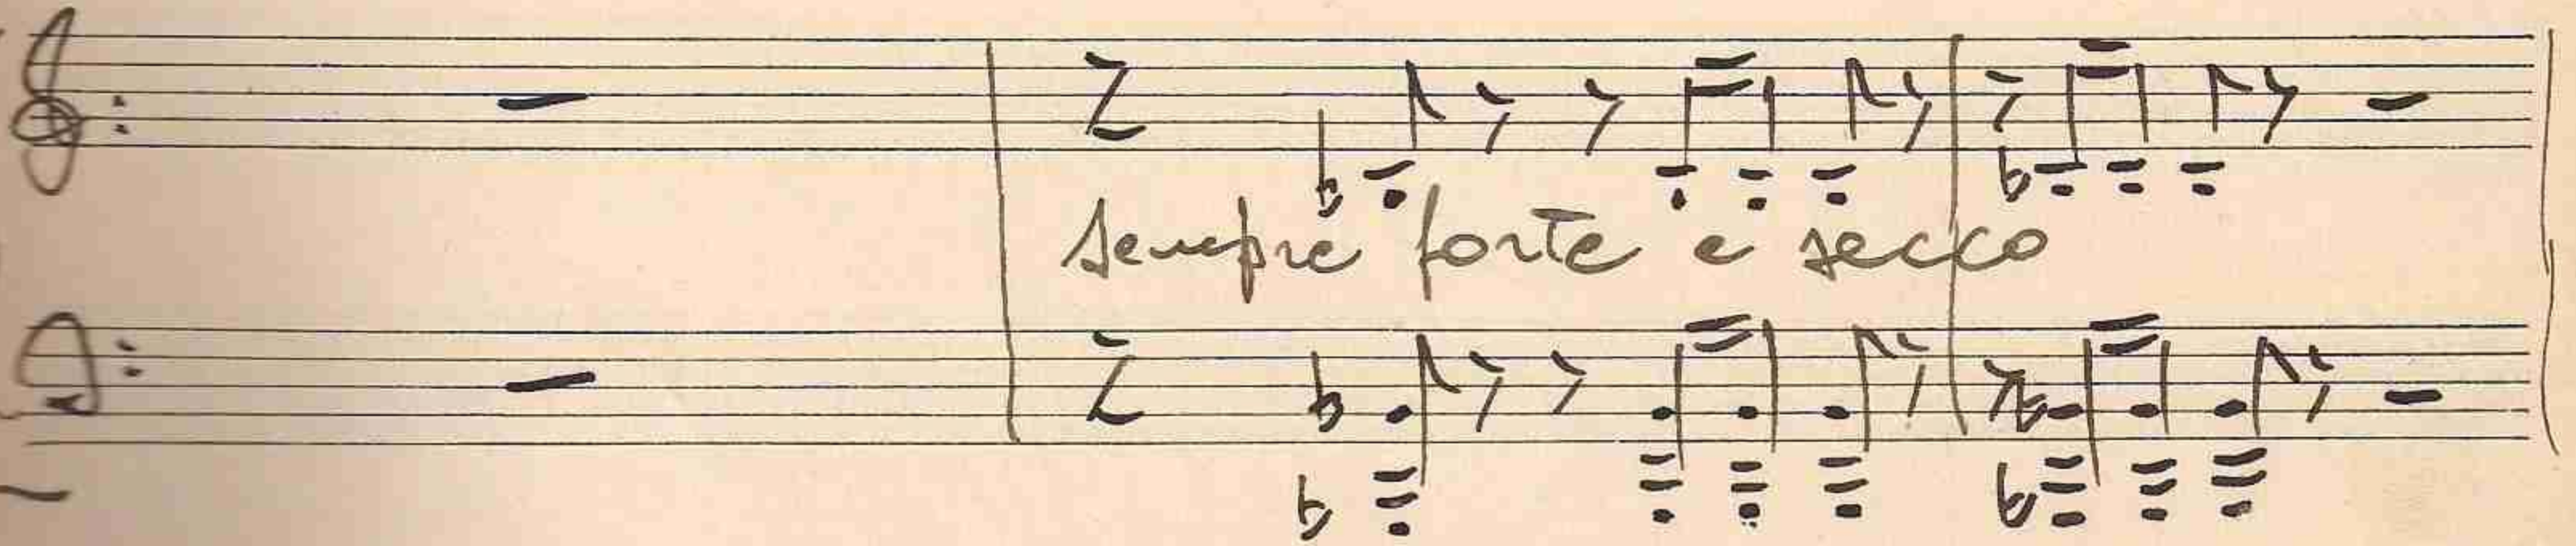 sempre forte e secco